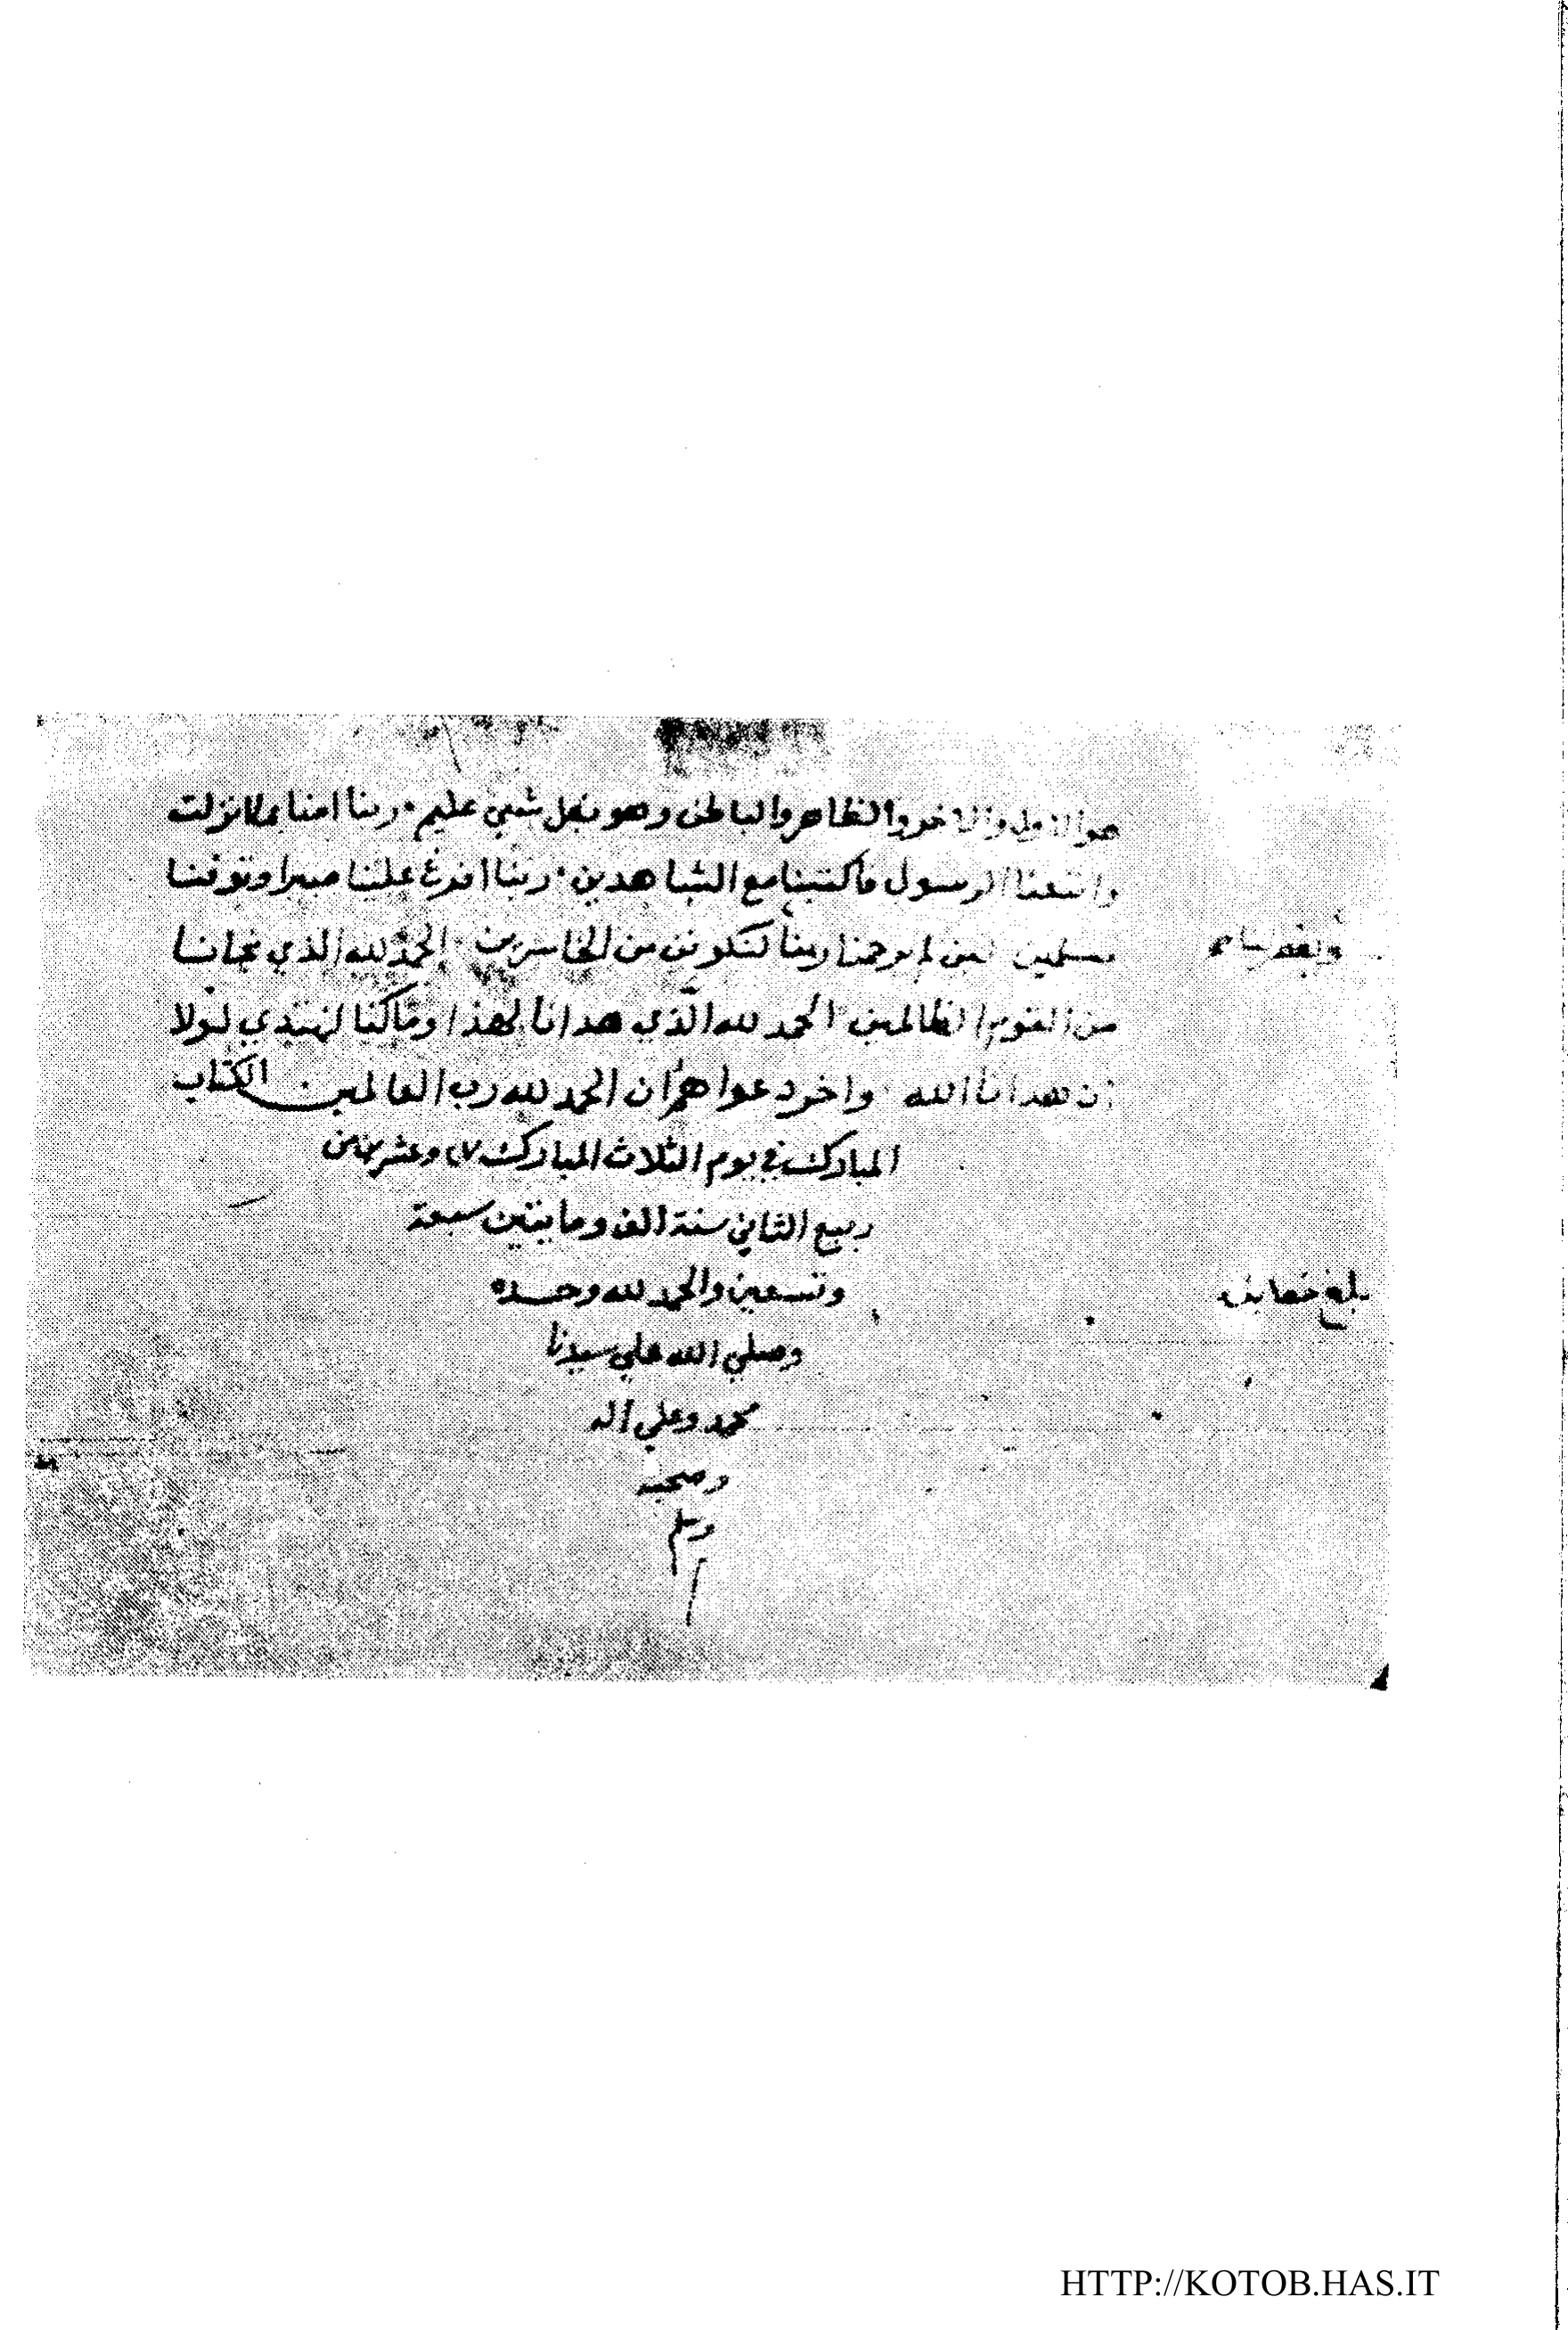 هو الاول والاخر والظاهر والباطن وهو بكل شيي عليم ٠ ربنا امنا بما انزلت
واتبعنا الرسول فاكتبنا مع الشاهدين ٠ ربنا افرغ علينا صبرا وتوفنا
مسلمين لين لم يرحمنا ربنا لنكونن من الخاسرين ٠ الحمد لله الذي نجانا
من القوم الظالمين الحمد لله الذي هدانا لهذا وما كنا لنهتدي لولا
ان هدانا الله واخر دعواهم ان الحمد لله رب العالمين ٠ الكتاب
المبارك في يوم الثلاث المبارك وعشرين من
ربيع الثاني سنة الف ومايتين سبعة
وتسعين والحمد لله وحده
وصلي الله علي سيدنا
محمد وعلي اله
وصحبه
وسلم
بلغ
HTTP://KOTOB.HAS.IT